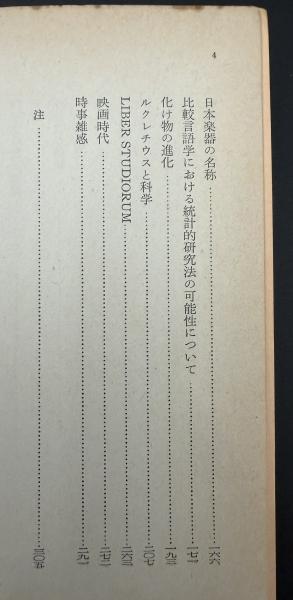 4
日本楽器の名称……一六六
比較言語学における統計的研究法の可能性について……一七一
化け物の進化……一九三
ルクレチウスと科学……二〇七
LIBER STUDIORUM……二六三
映画時代……二七二
時事雑感……二九一
注……三〇五